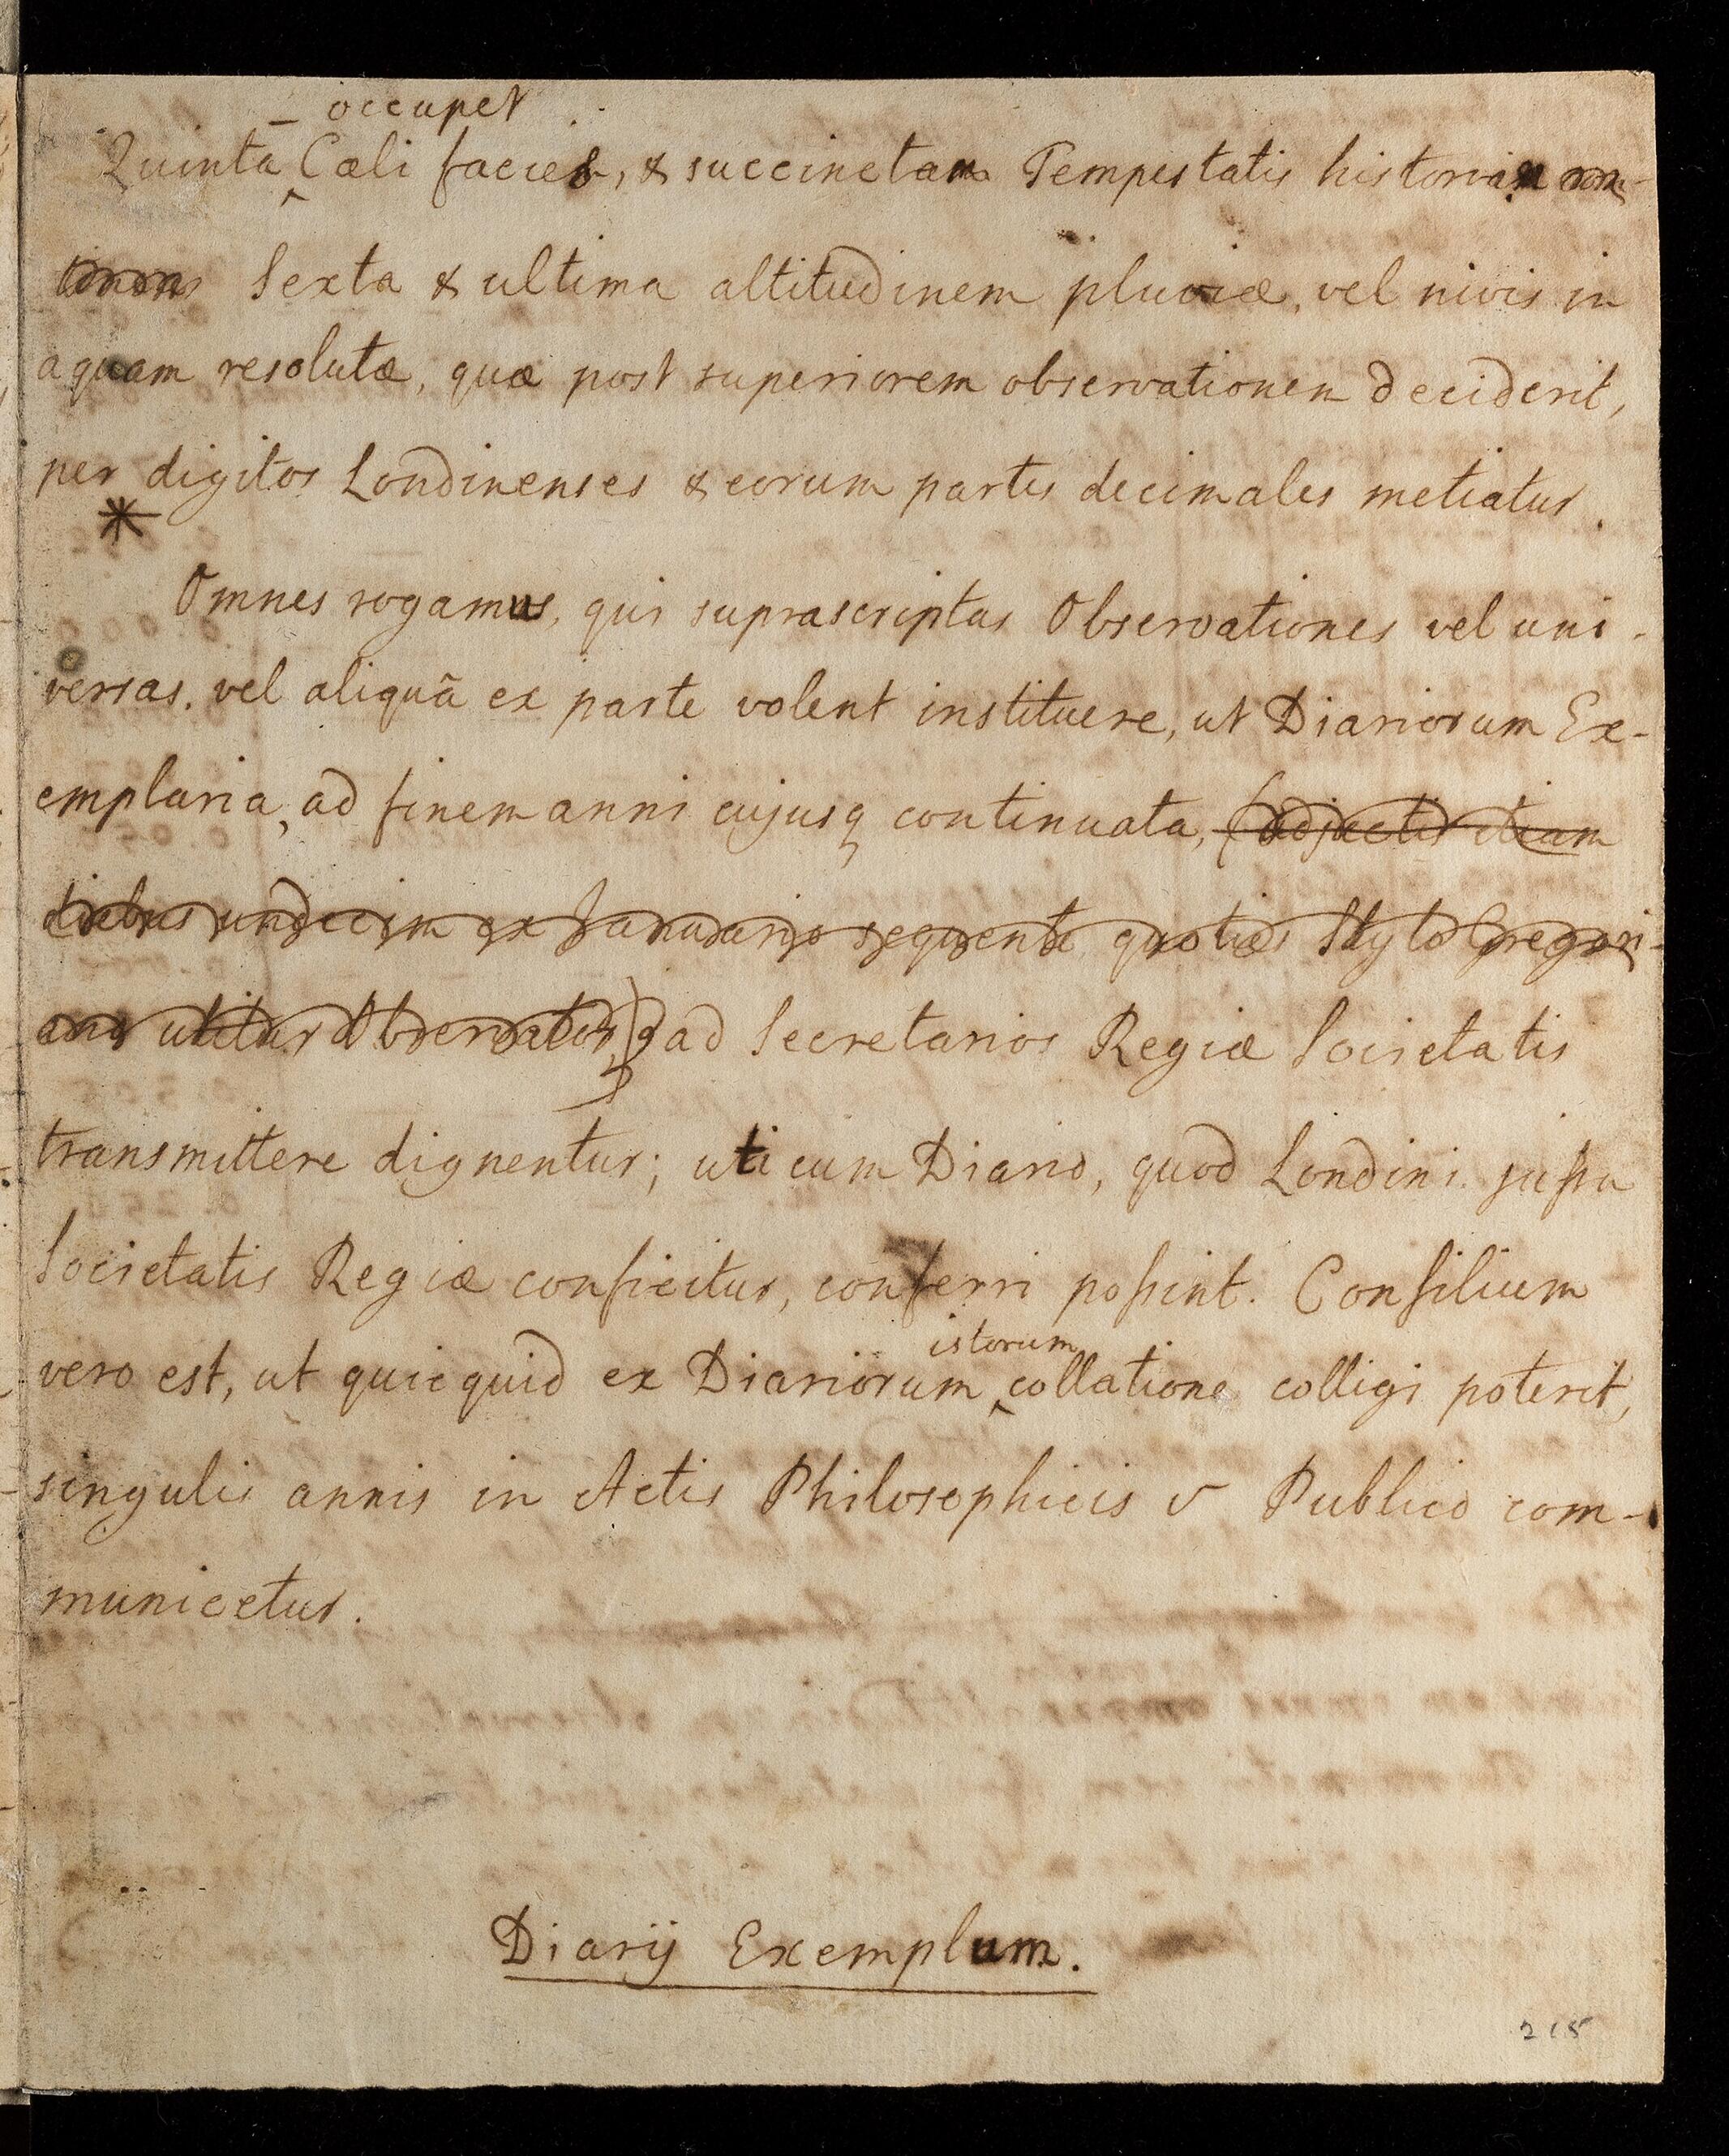 occupet
Quinta Cæli facies, & succincta Tempestatis historia con-
tinens Sexta & ultima altitudinem pluviæ, vel nivis in
aquam resolutæ, quæ post superiorem observationem deciderit,
per digitos Londinenses & eorum partes decimales metiatur.
*
Omnes rogamus, qui suprascriptas Observationes vel uni-
versas, vel aliquã ex parte volent instituere, ut Diariorum Ex-
emplaria, ad finem anni cujusq continuata, (adjectis etiam
diebus undecim ex Januario sequente quoties Stylo Gregori-
ano utitur Observator,) ad Secretarios Regiæ Societatis
transmittere dignentur; uti cum Diario, quod Londini jussu
Societatis Regiæ conficitur, conferri possint. Consilium
istorum
vero est, ut quicquid ex Diariorum collatione colligi poterit,
singulis annis in Actis Philosophicis Publico com-
municetur.
Diarij Exemplum.
215